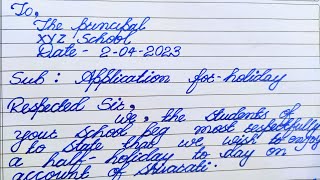 To,
The principal
XYZ School
Date - 2-04-2023
Sub : Application for-holiday
Respected Sir,
we, the students of
your school beg most respectfully
to state that we wish to enjoy
a half-holiday to day on
account of